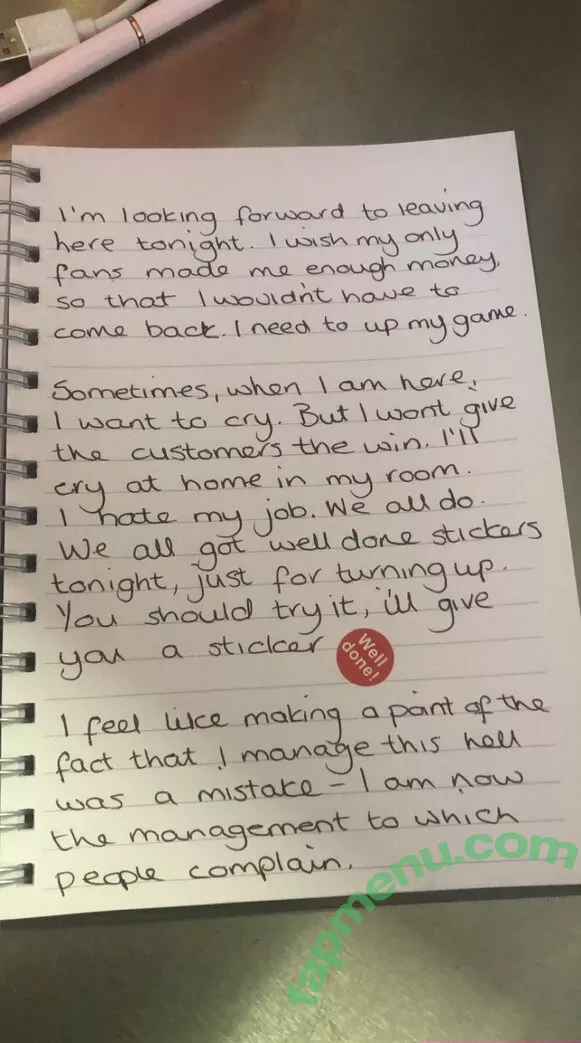 I'm looking forward to leaving
here tonight. I wish my only
fans made me enough money,
so that I wouldn't have to
come back. I need to up my game.
Sometimes, when I am here,
I want to cry. But I wont give
the customers the win. I'll
cry at home in my room.
I hate my job. We all do.
We all got well done stickers
tonight, just for turning up.
You should try it, i'll give
you a sticker
Well
done!
I feel like making a point of the
fact that I manage this hell
was a mistake - I am now
the management to which
people complain.
fapmenu.com